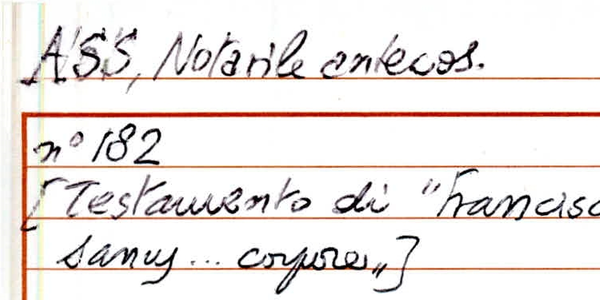 ASS, Notarile antecos.
n° 182
[Testamento di "Francisc
sanus... corpore„]